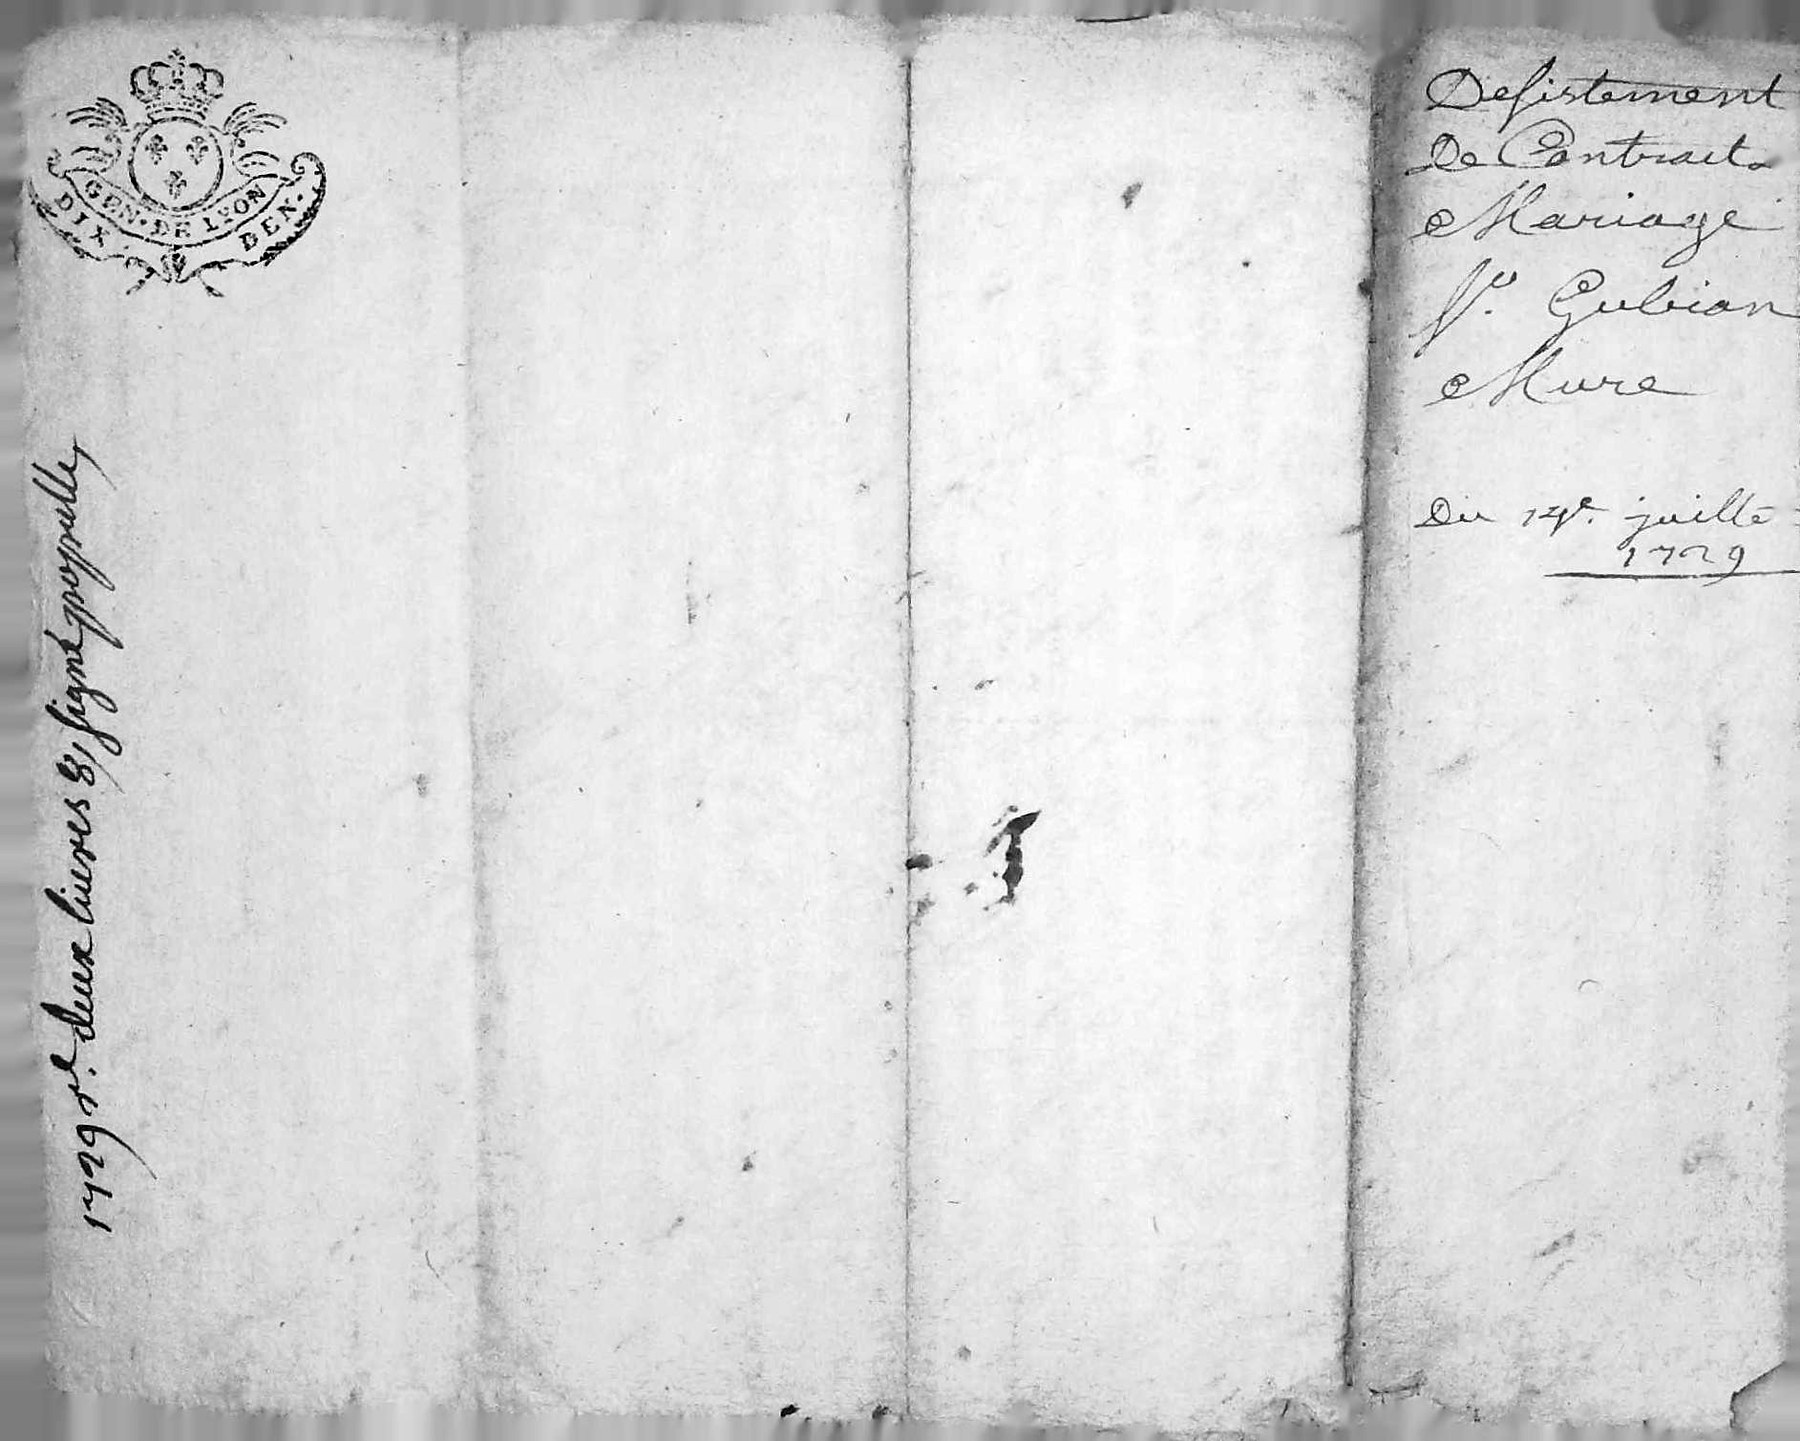 GEN. DE LYON
DIX DEN.
1729 r.e deux liures 8/ signé poyselle,
Desistement
De Contract
Mariage
Gubian
Mure
Du 14e. juille
1729